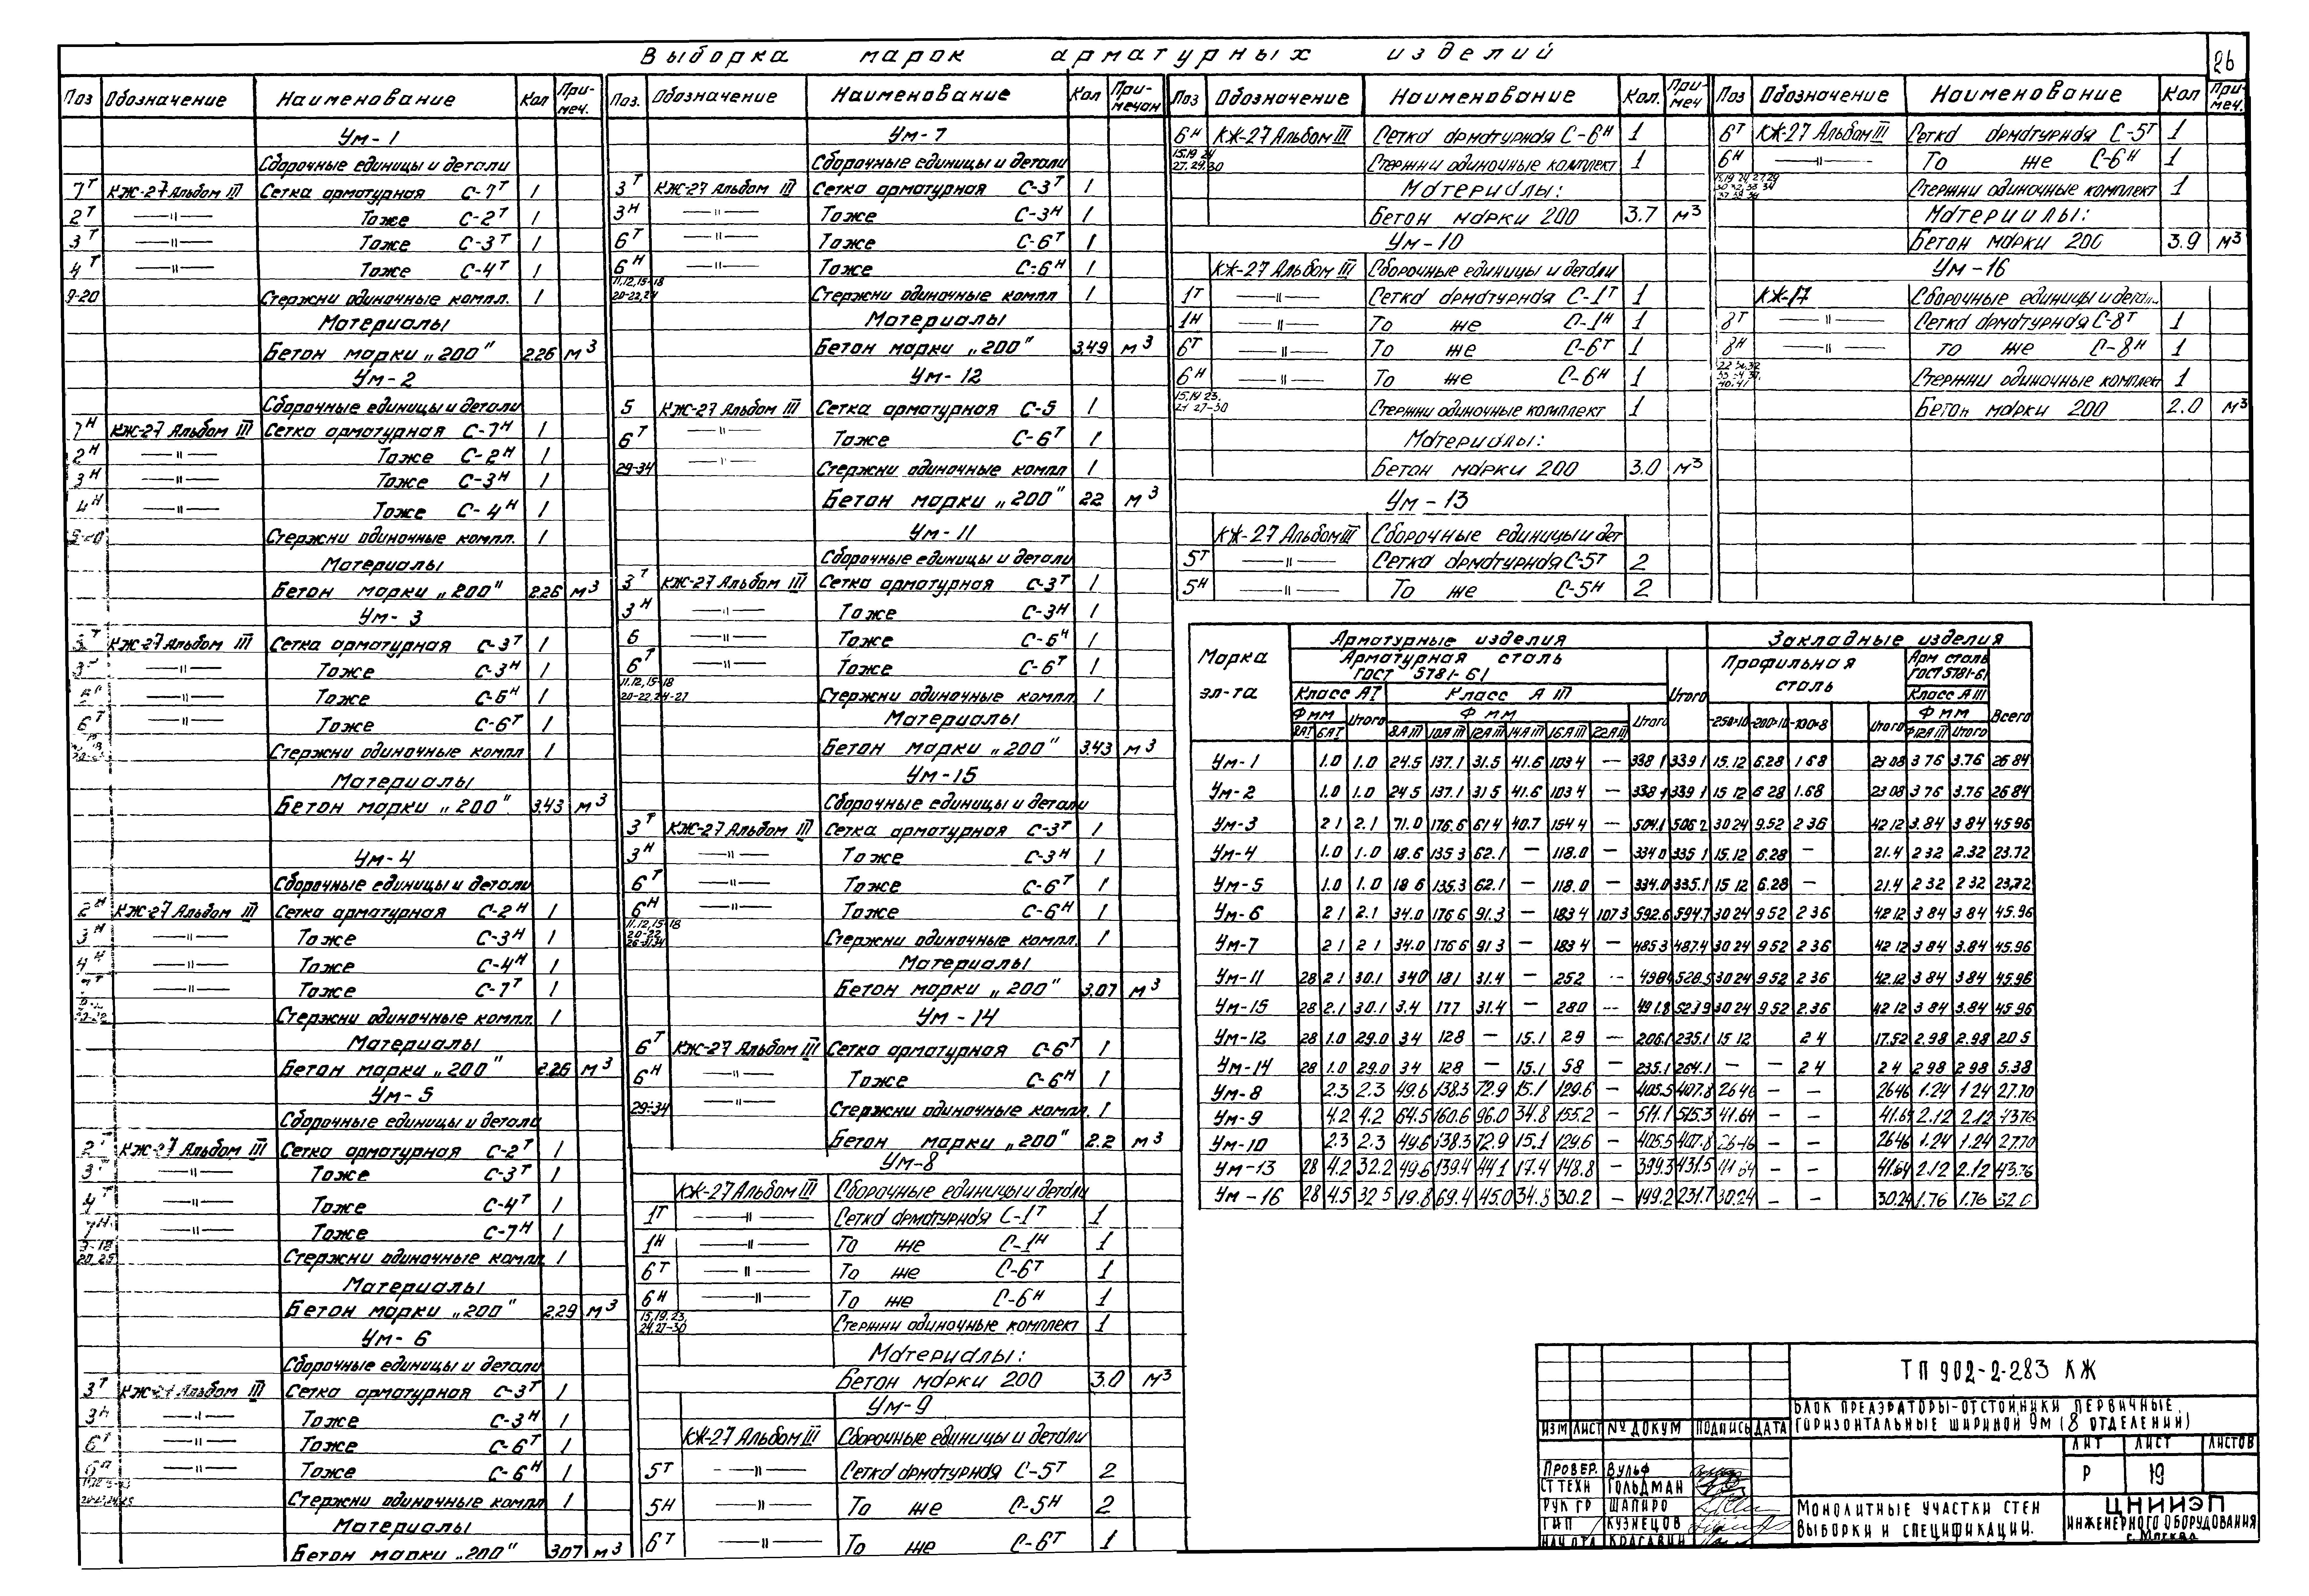 Выборка марок арматурных изделий
26
Поз Обозначение Наименование Кол При-меч.
Ум-1
Сборочные единицы и детали
7Т КЖ-27 Альбом III Сетка арматурная С-7Т 1
2Т —"— Тоже С-2Т 1
3Т —"— Тоже С-3Т 1
4Т —"— Тоже С-4Т 1
9-20 Стержни одиночные компл. 1
Материалы
Бетон марки „200" 2.26 м3
Ум-2
Сборочные единицы и детали
7Н КЖ-27 Альбом III Сетка арматурная С-7Н 1
2Н —"— Тоже С-2Н 1
3Н —"— Тоже С-3Н 1
4Н —"— Тоже С-4Н 1
Стержни одиночные компл. 1
Материалы
Бетон марки „200" 2.26 м3
Ум-3
КЖ-27 Альбом III Сетка арматурная С-3Т 1
—"— Тоже С-3Н 1
—"— Тоже С-6Н 1
6Т —"— Тоже С-6Т 1
Стержни одиночные компл 1
Материалы
Бетон марки „200" 3.43 м3
Ум-4
Сборочные единицы и детали
2Н КЖ-27 Альбом III Сетка арматурная С-2Н 1
3Н —"— Тоже С-3Н 1
4Н —"— Тоже С-4Н 1
—"— Тоже С-7Т 1
Стержни одиночные компл. 1
Материалы
Бетон марки „200" 2.26 м3
Ум-5
Сборочные единицы и детали
2Т КЖ-27 Альбом III Сетка арматурная С-2Т 1
3Т —"— Тоже С-3Т 1
4Т —"— Тоже С-4Т 1
7Н —"— Тоже С-7Н 1
Стержни одиночные компл. 1
Материалы
Бетон марки „200" 2.29 м3
Ум-6
Сборочные единицы и детали
3Т КЖ-27 Альбом III Сетка арматурная С-3Т 1
3Н —"— Тоже С-3Н 1
6Т —"— Тоже С-6Т 1
—"— Тоже С-6Н 1
Стержни одиночные компл 1
Материалы
Бетон марки „200" 3.07 м3
Поз. Обозначение Наименование Кол При-мечан
Ум-7
Сборочные единицы и детали
3Т КЖ-27 Альбом III Сетка арматурная С-3Т 1
3Н —"— Тоже С-3Н 1
6Т —"— Тоже С-6Т 1
6Н —"— Тоже С-6Н 1
11,12,15-18
20-22,24 Стержни одиночные компл 1
Материалы
Бетон марки „200" 3.49 м3
Ум-12
5 КЖ-27 Альбом III Сетка арматурная С-5 1
6Т —"— Тоже С-6Т 1
29-34 —"— Стержни одиночные компл 1
Бетон марки „200" 22 м3
Ум-11
Сборочные единицы и детали
3Т КЖ-27 Альбом III Сетка арматурная С-3Т 1
3Н —"— Тоже С-3Н 1
6 —"— Тоже С-6Н 1
6Т —"— Тоже С-6Т 1
11,12,15-18
20-22,24-27 Стержни одиночные компл. 1
Материалы
Бетон марки „200" 3.43 м3
Ум-15
Сборочные единицы и детали
3Т КЖ-27 Альбом III Сетка арматурная С-3Т 1
3Н —"— Тоже С-3Н 1
6Т —"— Тоже С-6Т 1
6Н —"— Тоже С-6Н 1
11,12,15-18
20-22
Стержни одиночные компл. 1
Материалы
Бетон марки „200" 3.07 м3
Ум-14
6Т КЖ-27 Альбом III Сетка арматурная С-6Т 1
6Н —"— Тоже С-6Н 1
29-34 —"— Стержни одиночные компл. 1
Бетон марки „200" 2.2 м3
Ум-8
КЖ-27 Альбом III Сборочные единицы и детали
1Т —"— Сетка арматурная С-1Т 1
1Н —"— То же С-1Н 1
6Т —"— То же С-6Т 1
6Н —"— То же С-6Н 1
15,19,23,
24,27-30 Стержни одиночные комплект 1
Материалы:
Бетон марки 200 3.0 м3
Ум-9
КЖ-27 Альбом III Сборочные единицы и детали
5Т —"— Сетка арматурная С-5Т 2
5Н —"— То же С-5Н 2
6Т —"— То же С-6Т 1
Поз Обозначение Наименование Кол. При-меч
6Н КЖ-27 Альбом III Сетка арматурная С-6Н 1
15,19 24
27,29,30 Стержни одиночные комплект 1
Материалы:
Бетон марки 200 3.7 м3
Ум-10
КЖ-27 Альбом III Сборочные единицы и детали
1Т —"— Сетка арматурная С-1Т 1
1Н —"— То же С-1Н 1
6Т —"— То же С-6Т 1
6Н —"— То же С-6Н 1
15,19 23,
24 27-30 Стержни одиночные комплект 1
Материалы:
Бетон марки 200 3.0 м3
Ум-13
КЖ-27 Альбом III Сборочные единицы и дет
5Т —"— Сетка арматурная С-5Т 2
5Н —"— То же С-5Н 2
Поз Обозначение Наименование Кол При-меч.
6Т КЖ-27 Альбом III Сетка арматурная С-5Т 1
6Н —"— То же С-6Н 1
Стержни одиночные комплект 1
Материалы:
Бетон марки 200 3.9 м3
Ум-16
КЖ-17 Сборочные единицы и детали
8Т —"— Сетка арматурная С-8Т 1
8Н —"— то же С-8Н 1
Стержни одиночные комплект 1
Бетон марки 200 2.0 м3
Марка эл-та Арматурные изделия Закладные изделия
Арматурная сталь ГОСТ 5781-61 Итого Профильная сталь Арм сталь ГОСТ 5781-61 Всего
Класс АI Класс А III Класс А III
Ф мм Итого Ф мм Итого -250×10 -200×10 -100×8 Итого Ф мм
8АI 6АI 8А III 10А III 12А III 14А III 16А III 22А III Ф12А III Итого
Ум-1 1.0 1.0 24.5 137.1 31.5 41.6 103 4 — 338 1 339 1 15.12 6.28 1 68 23 08 3 76 3.76 26 84
Ум-2 1.0 1.0 24 5 137.1 31 5 41.6 103 4 — 338 1 339 1 15 12 6 28 1.68 23 08 3 76 3.76 26 84
Ум-3 2 1 2.1 71.0 176.6 61 4 40.7 154 4 — 504.1 506 2 30 24 9.52 2 36 42 12 3.84 3 84 45.96
Ум-4 1.0 1.0 18.6 135 3 62.1 — 118.0 — 334 0 335 1 15.12 6.28 — 21.4 2 32 2.32 23.72
Ум-5 1.0 1.0 18 6 135.3 62.1 — 118.0 — 334.0 335.1 15 12 6.28 — 21.4 2 32 2 32 23,72
Ум-6 2 1 2.1 34.0 176 6 91.3 — 183 4 107 3 592.6 594.7 30 24 9 52 2 36 42 12 3 84 3 84 45.96
Ум-7 2 1 2 1 34.0 176 6 91 3 — 183 4 — 485 3 487.4 30 24 9 52 2 36 42 12 3 84 3.84 45.96
Ум-11 28 2 1 30.1 340 181 31.4 — 252 -- 498.4 528.5 30 24 9 52 2 36 42.12 3 84 3.84 45.96
Ум-15 28 2.1 30.1 3.4 177 31.4 — 280 --- 491.8 523.9 30 24 9 52 2.36 42 12 3.84 3.84 45.96
Ум-12 28 1.0 29.0 34 128 — 15.1 29 — 206.1 235.1 15 12 2 4 17.52 2.98 2.98 20 5
Ум-14 28 1.0 29.0 34 128 — 15.1 58 — 235.1 264.1 — — 2 4 2 4 2 98 2 98 5.38
Ум-8 2.3 2.3 49.6 138.3 72.9 15.1 129.6 — 405.5 407.8 26 46 — — 2646 1.24 1 24 27.70
Ум-9 4.2 4.2 64.5 160.6 96.0 34.8 155.2 — 511.1 515.3 41.64 — — 41.64 2.12 2.12 43.76
Ум-10 2.3 2.3 49.6 138.3 72.9 15.1 129.6 — 405.5 407.8 26-46 — — 2646 1.24 1.24 27.70
Ум-13 28 4.2 32.2 49.6 139.4 44.1 17.4 148.8 — 399.3 431.5 41 64 — — 41.64 2.12 2.12 43.76
Ум-16 28 4.5 32 5 19.8 69.4 45.0 34.8 30.2 — 199.2 231.7 30.24 — — 30.24 1.76 1.76 32 0
ТП 902-2-283 КЖ
БЛОК ПРЕАЭРАТОРЫ-ОТСТОЙНИКИ ПЕРВИЧНЫЕ,
ГОРИЗОНТАЛЬНЫЕ ШИРИНОЙ 9м (8 ОТДЕЛЕНИЙ)
ИЗМ ЛИСТ № ДОКУМ ПОДПИСЬ ДАТА
ЛИТ ЛИСТ ЛИСТОВ
Р 19
ПРОВЕР. ВУЛЬФ
СТ ТЕХН ГОЛЬДМАН
РУК ГР ШАПИРО
ГИП КУЗНЕЦОВ
НАЧ ОТД КРАСАВИН
МОНОЛИТНЫЕ УЧАСТКИ СТЕН
ВЫБОРКИ И СПЕЦИФИКАЦИИ.
ЦНИИЭП
ИНЖЕНЕРНОГО ОБОРУДОВАНИЯ
г. МОСКВА